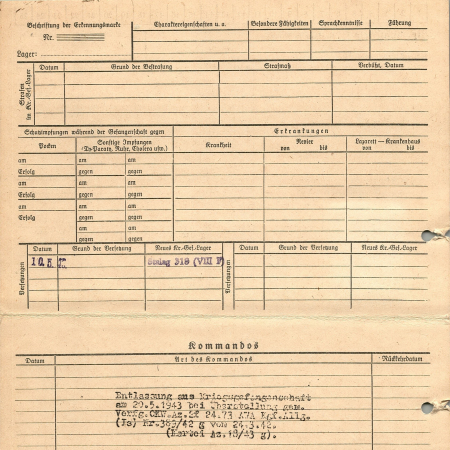 Beschriftung der Erkennungsmarke
Nr.
Lager:
Charaktereigenschaften u. a.
Besondere Fähigkeiten
Sprachkenntnisse
Führung
Strafen im Kr.-Gef.-Lager
Datum
Grund der Bestrafung
Strafmaß
Verbüßt, Datum
Schutzimpfungen während der Gefangenschaft gegen
Erkrankungen
Pocken
Sonstige Impfungen
(Ty-Paraty, Ruhr, Cholera usw.)
Krankheit
Revier
von bis
Lazarett - Krankenhaus
von bis
am am am
Erfolg gegen gegen
am am am
Erfolg gegen gegen
am am am
Erfolg gegen gegen
am am
gegen gegen
Versetzungen
Datum Grund der Versetzung Neues Kr.-Gef.-Lager
Versetzungen
Datum Grund der Versetzung Neues Kr.-Gef.-Lager
10.5. Stalag 318 (VIII F)
Kommandos
Datum Art des Kommandos Rückkehrdatum
Entlassung aus Kriegsgefangenschaft
am 20.5.1943 bei Überstellung gem.
Verfg.OKW.Az.2f 24.73 AWA Kgf.Allg.
(Ia) Nr.389/42 g vom 24.3.42.
(Kartei Az.18/43 g).